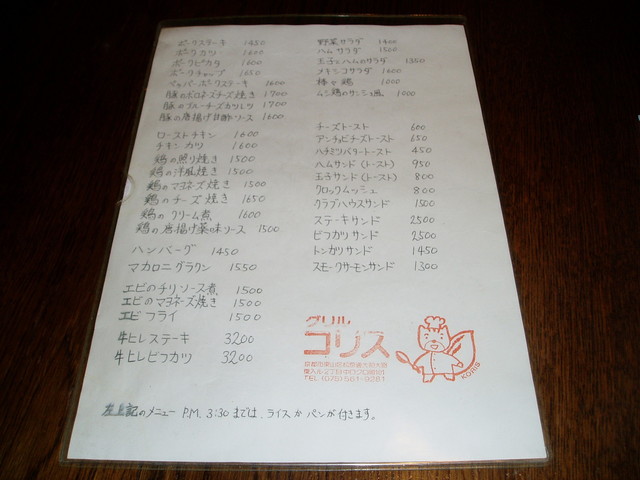 ポークステーキ 1450
ポークカツ 1600
ポークピカタ 1600
ポークチャップ 1650
ペッパーポークステーキ 1600
豚のボロネーズチーズ焼き 1700
豚のブルーチーズカツレツ 1700
豚の唐揚げ甘酢ソース 1600
ローストチキン 1600
チキンカツ 1600
鶏の照り焼き 1500
鶏の洋風焼き 1500
鶏のマヨネーズ焼き 1500
鶏のチーズ焼き 1650
鶏のクリーム煮 1600
鶏の唐揚げ薬味ソース 1500
ハンバーグ 1450
マカロニグラタン 1550
エビのチリソース煮 1500
エビのマヨネーズ焼き 1500
エビフライ 1500
牛ヒレステーキ 3200
牛ヒレビフカツ 3200
野菜サラダ 1400
ハムサラダ 1500
玉子とハムのサラダ 1500
メキシコサラダ 1600
棒々鶏 1000
ムシ鶏のサンショ風 1000
チーズトースト 600
アンチョビチーズトースト 650
ハチミツバタートースト 450
ハムサンド(トースト) 950
玉子サンド(トースト) 800
クロックムッシュ 800
クラブハウスサンド 1500
ステーキサンド 2500
ビフカツサンド 2500
トンカツサンド 1450
スモークサーモンサンド 1300
グリル
コリス
TEL (075) 561-9281
KORIS
左上記のメニュー P.M. 3:30までは、ライスかパンが付きます。